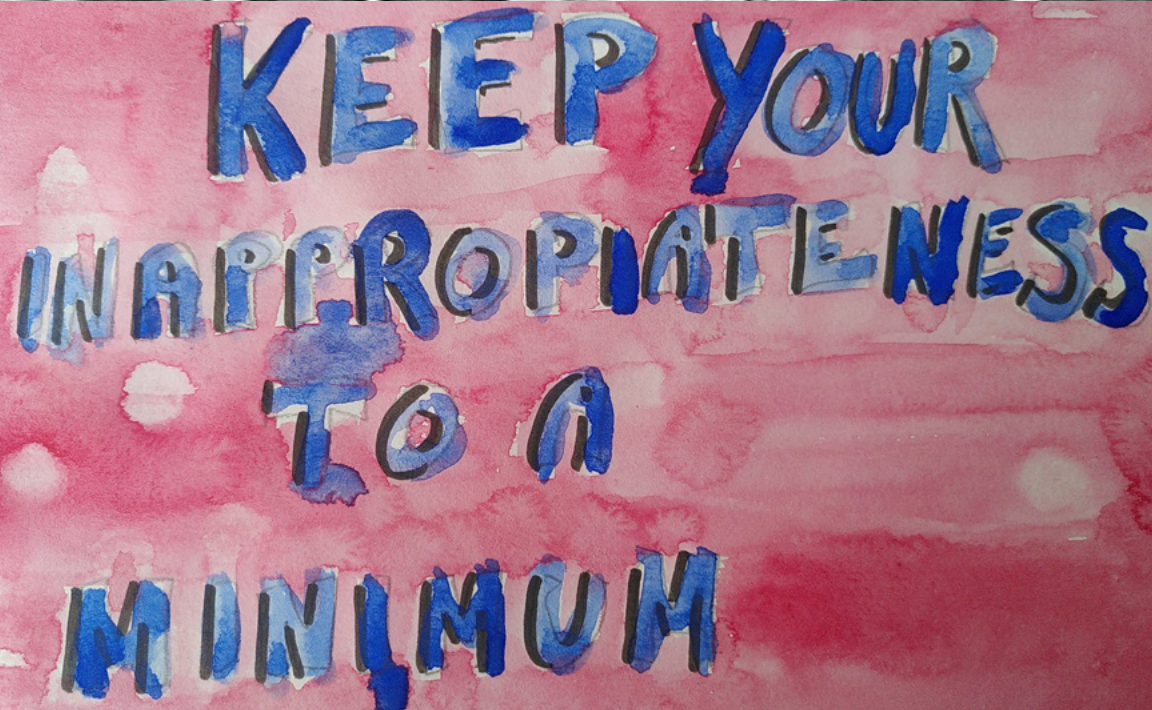 KEEP YOUR
INAPPROPIATENESS
TO A
MINIMUM